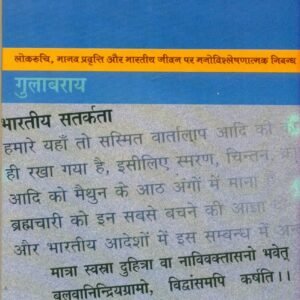 लोकरुचि, मानव प्रवृत्ति और भारतीय जीवन पर मनोविश्लेषणात्मक निबन्ध
गुलाबराय
भारतीय सतर्कता
हमारे यहाँ तो सस्मित वार्तालाप आदि को
ही रखा गया है, इसीलिए स्मरण, चिन्तन,
आदि को मैथुन के आठ अंगों में माना
ब्रह्मचारी को इन सबसे बचने की आज्ञा
और भारतीय आदेशों में इस सम्बन्ध में
मात्रा स्वस्रा दुहित्रा वा नाविविक्तासनो भवेत्
बलवानिन्द्रियग्रामो, विद्वांसमपि कर्षति।।